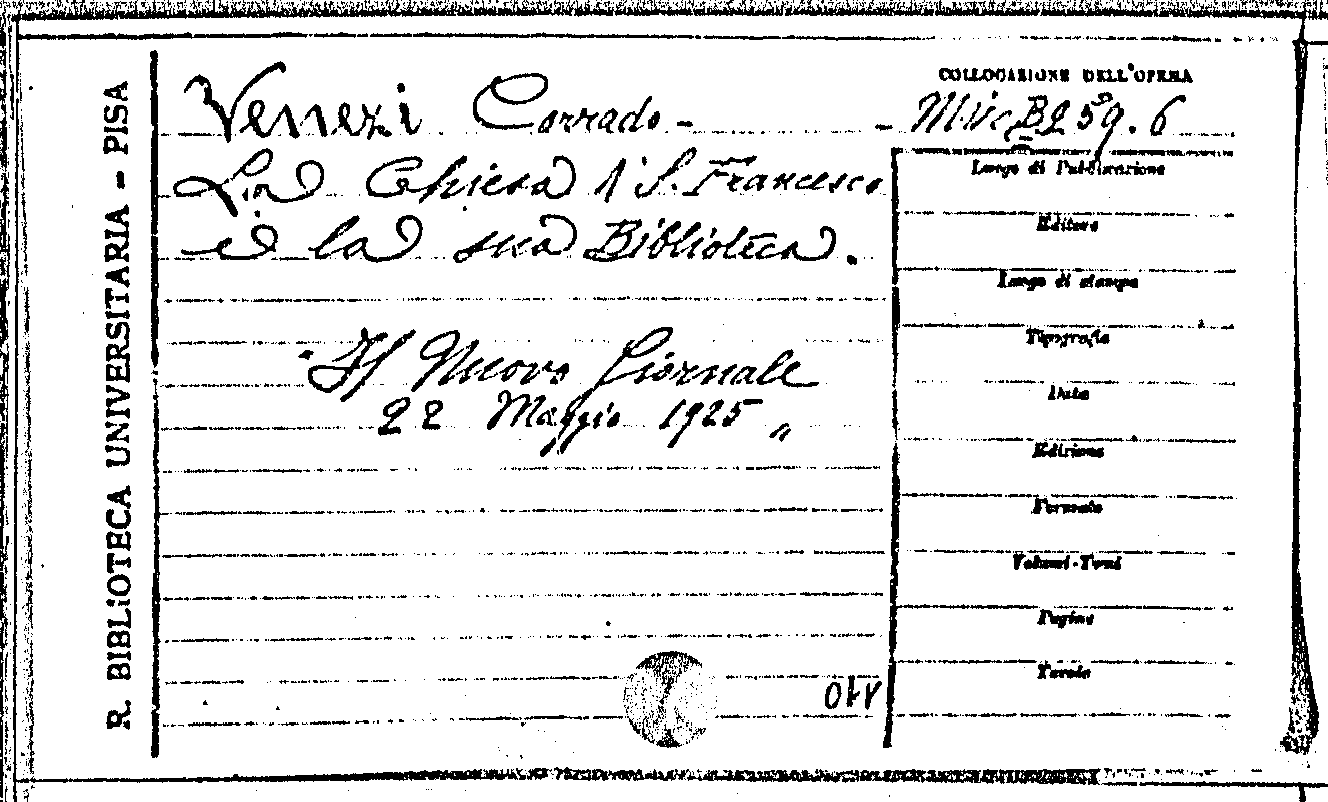 R. BIBLIOTECA UNIVERSITARIA - PISA
COLLOCAZIONE DELL'OPERA
Venezi Corrado -
La Chiesa di S. Francesco
e la sua Biblioteca.
"Il Nuovo Giornale
22 Maggio 1925"
Luogo di Pubblicazione
Editore
Luogo di stampa
Tipografia
Data
Edizione
Formato
Volumi-Tomi
Pagine
Tavole